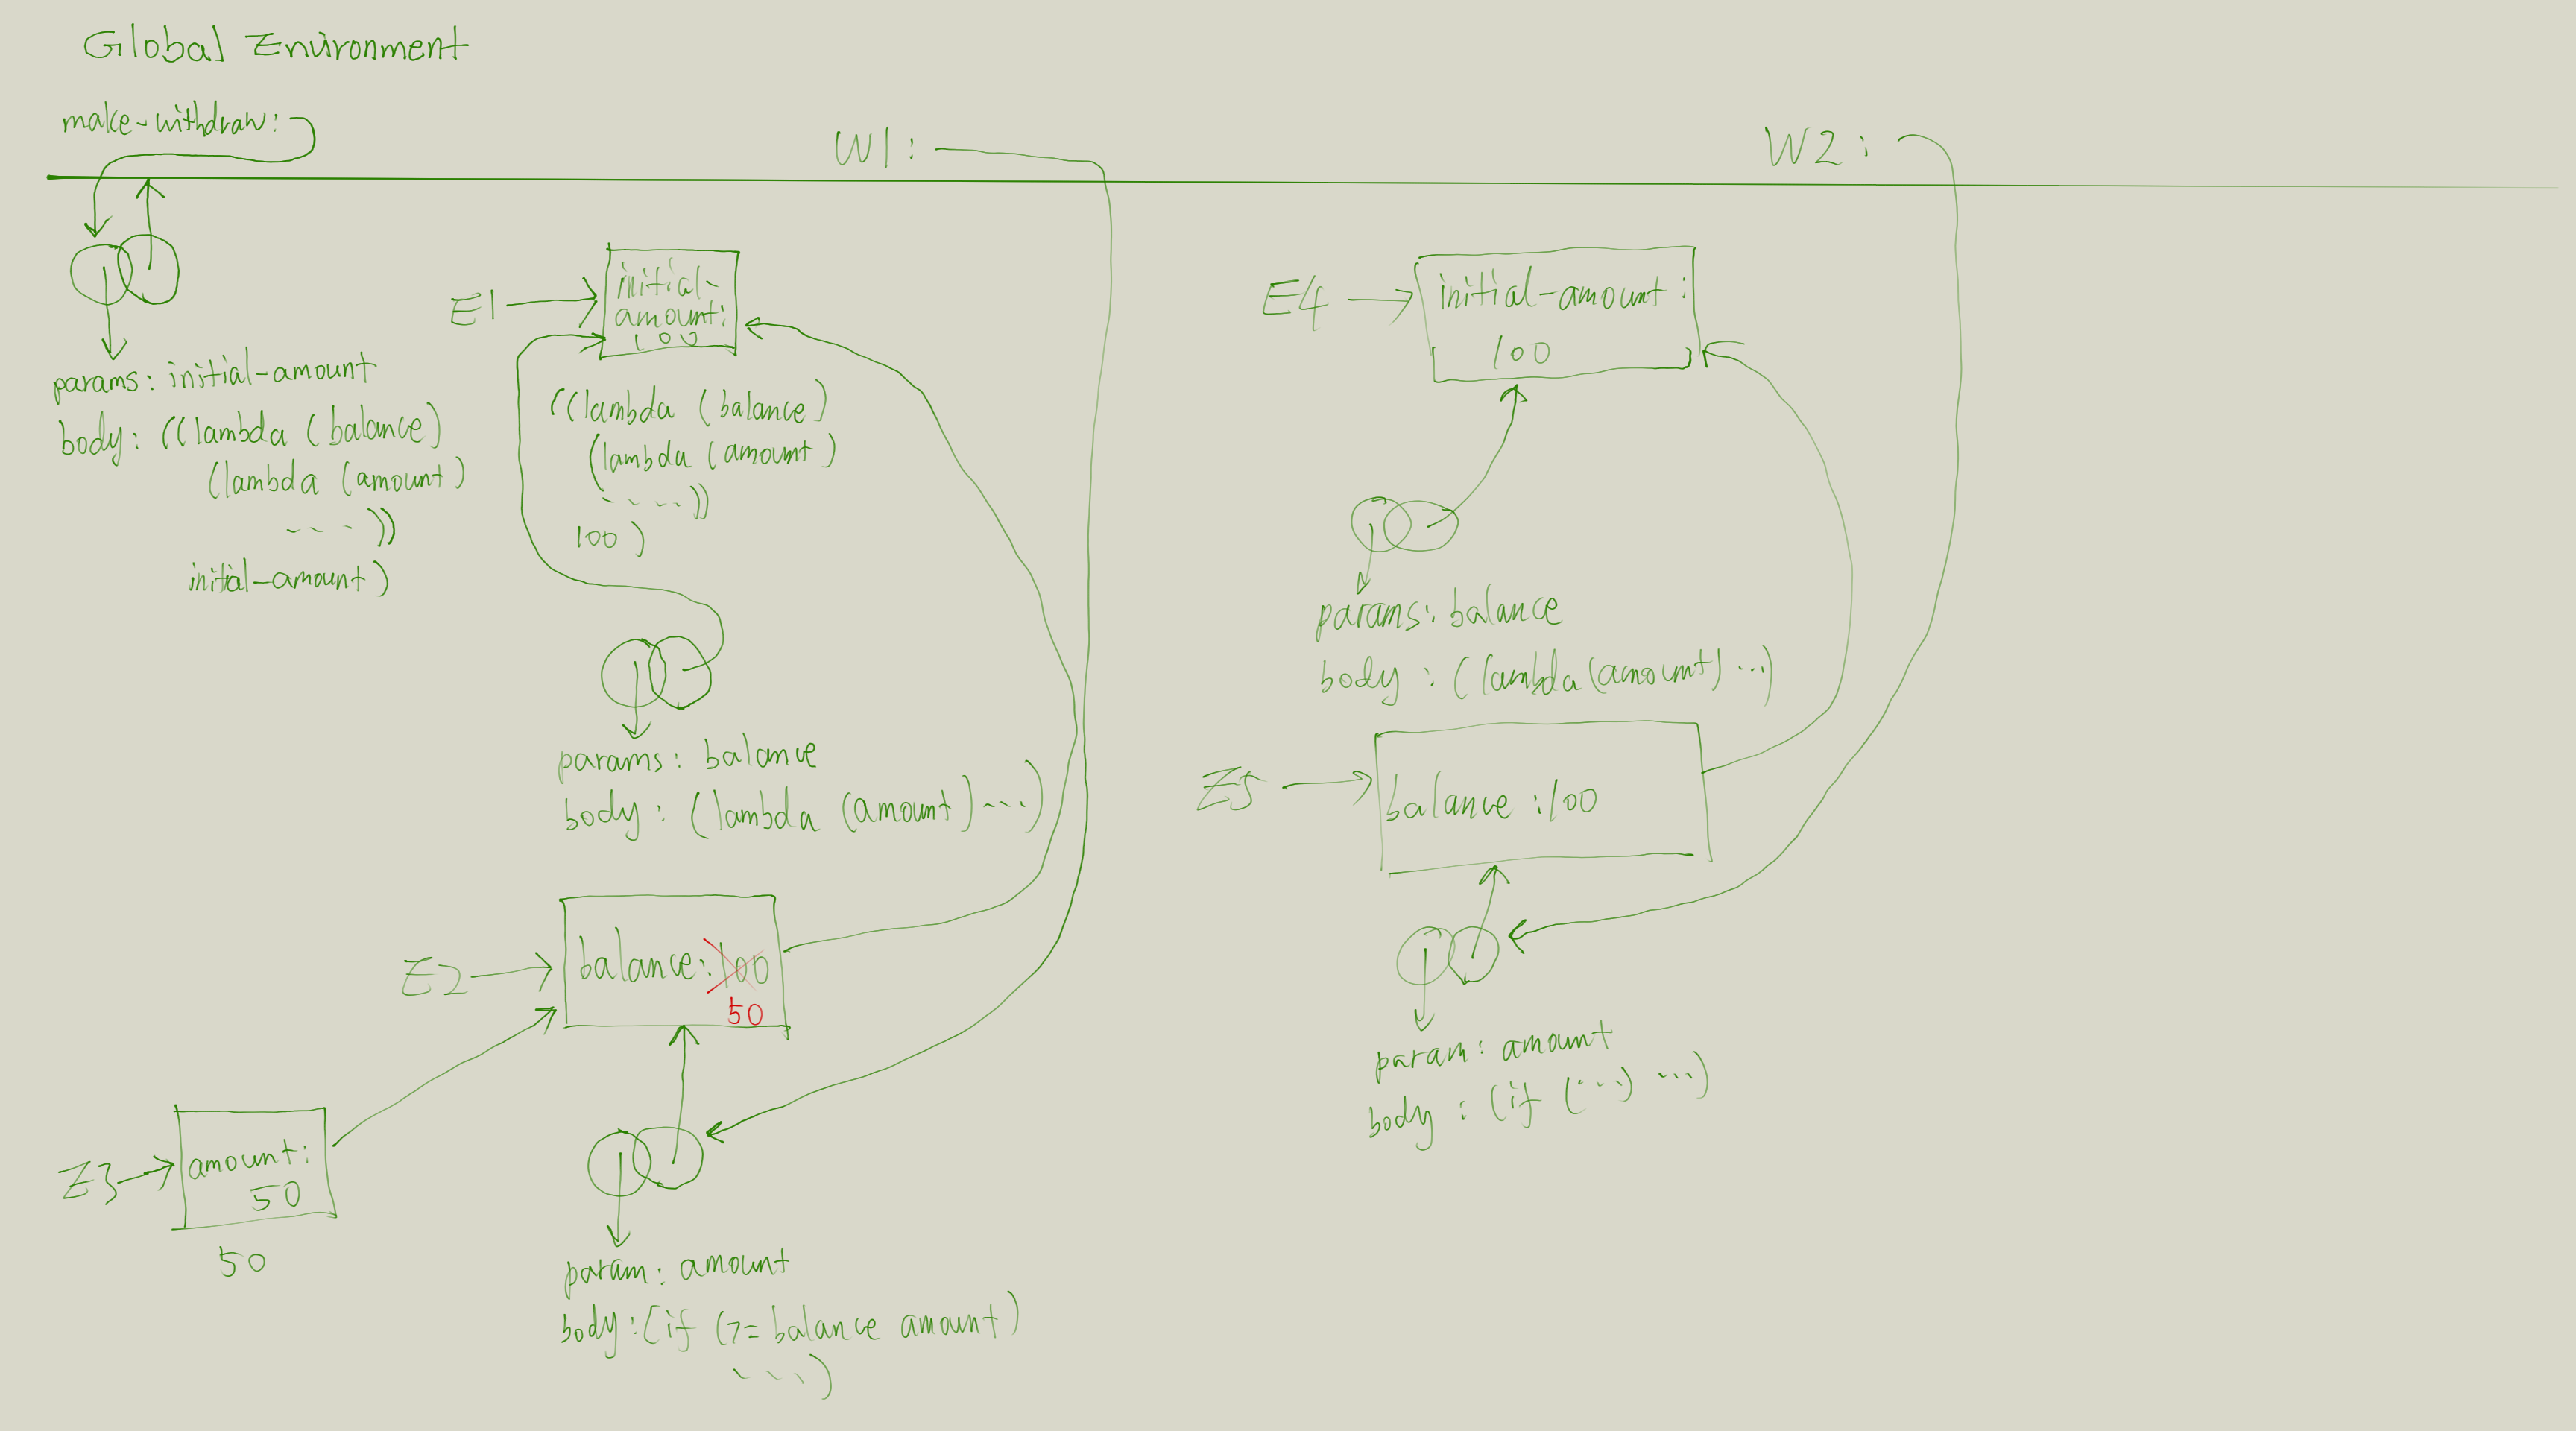 Global Environment
make-withdraw:
W1:
W2:
params: initial-amount
body: ((lambda (balance)
(lambda (amount)
....))
initial-amount)
E1
initial-
amount:
100
((lambda (balance)
(lambda (amount)
.....))
100)
params: balance
body: (lambda (amount) ....)
E2
balance: 100
50
E3
amount:
50
50
param: amount
body: (if (>= balance amount)
....)
E4
initial-amount:
100
params: balance
body: (lambda (amount) ...)
E5
balance: 100
param: amount
body: (if (...) ...)